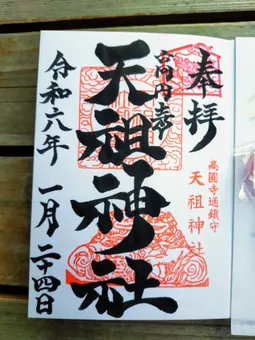 奉拝
高圓寺通鎮守
天祖神社
天祖神社
令和六年 一月 二十四日